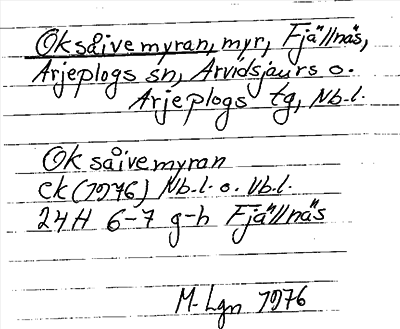 Oksåivemyran, myr, Fjällnäs,
Arjeplogs sn, Arvidsjaurs o.
Arjeplogs tg, Nb.l.
Oksåivemyran
ek (1976) Nb.l. o. Vb.l.
24H 6-7 g-h Fjällnäs
M. Lgn 1976